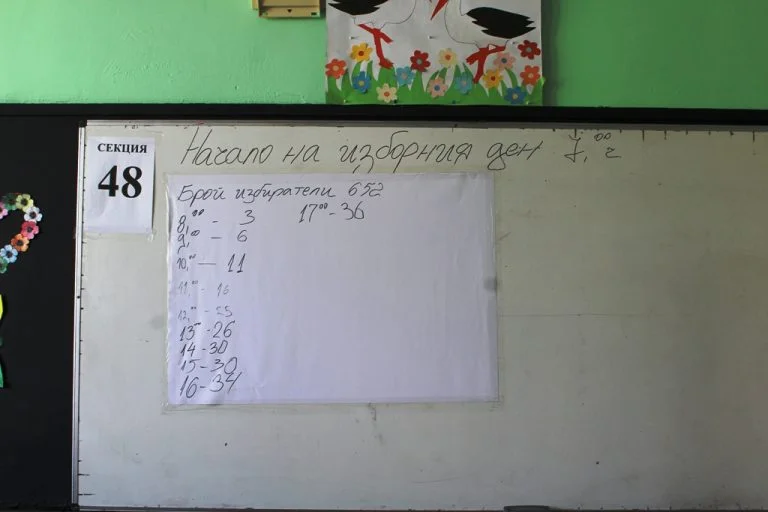 СЕКЦИЯ
48
Начало на изборния ден 7,00 ч
Брой избиратели 652
8,00 - 3
17 00 - 36
9,00 - 6
10,00 - 11
11,00 - 16
12,00 - 25
13 00 - 26
14 - 30
15 - 30
16 - 34